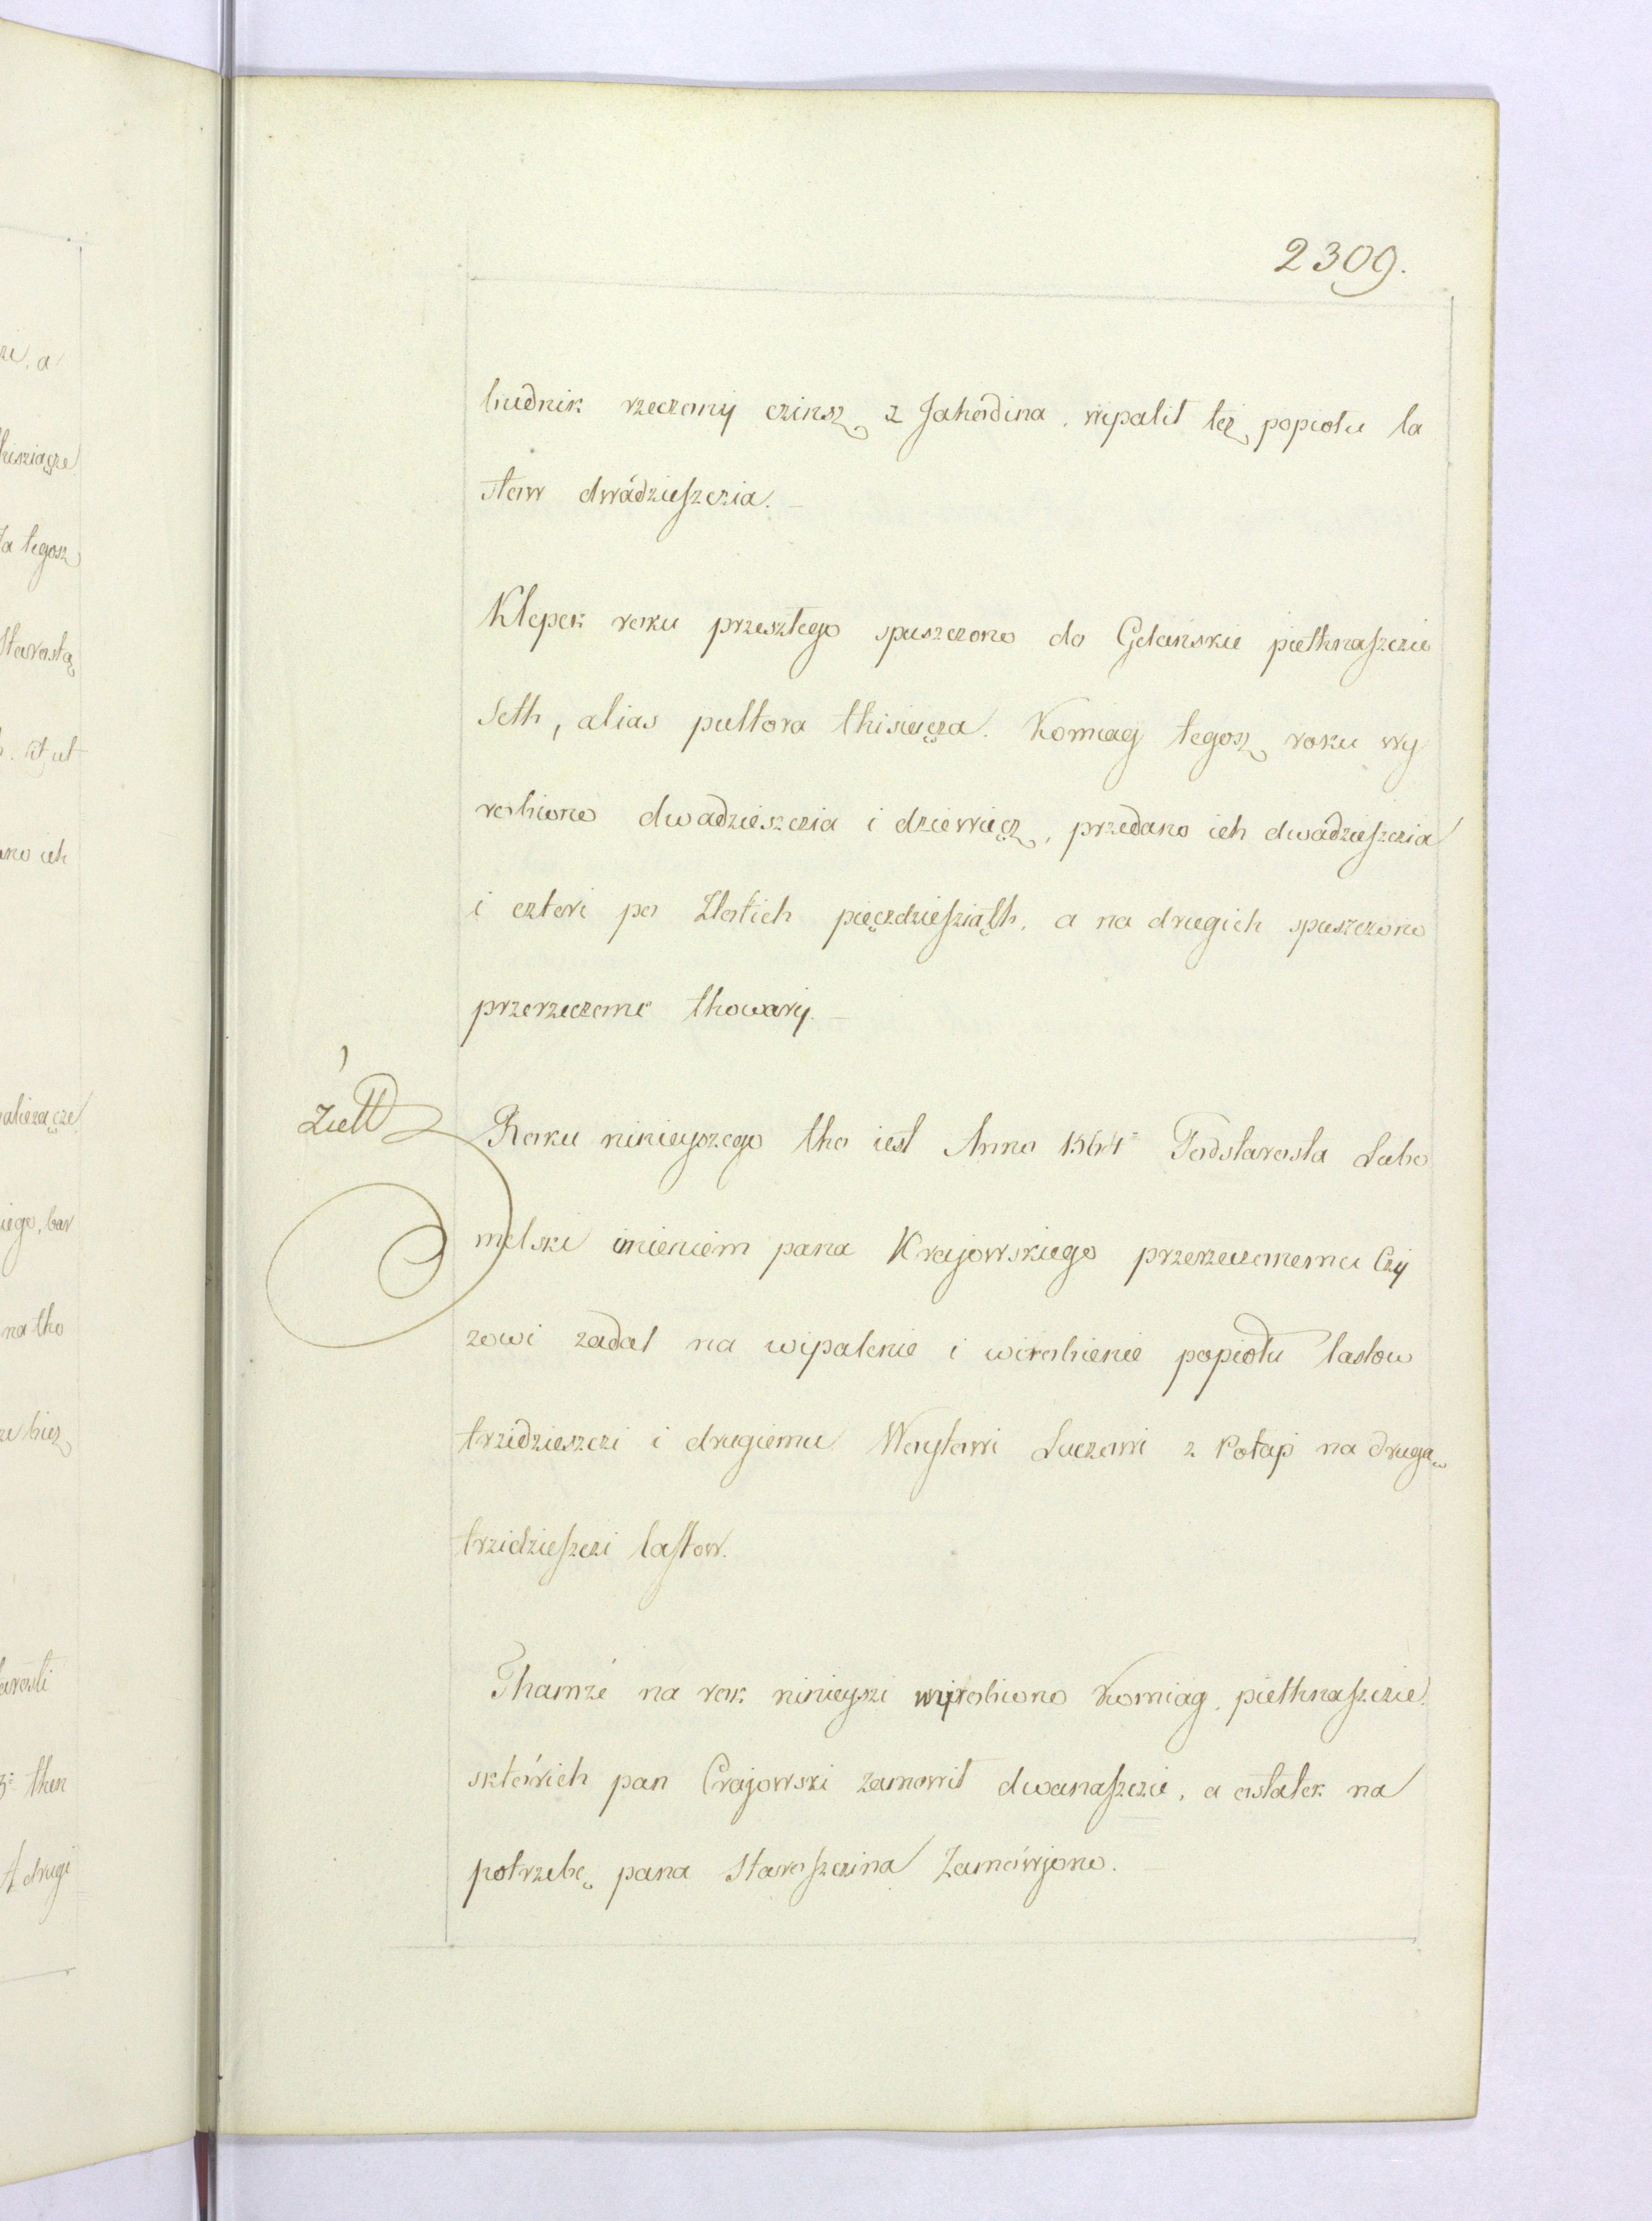 2309.
budnik rzeczony czinsz z Jahodina. wipalił też popiołu la
stow dwádzieszczia.
Klepek roku przeszłego spuszczono do Gdańskie piethnaszczie
Seth, alias pułtora thisięcza. Komiag tegosz roku wy
robiono dwadzieszczia i dziewięcz, przedano ich dwadzieszczia
i cztori po Złotich pięczdziesziąth, a na drugich spuszczono
przerzeczone thowary.
Zuℓℓ
Roku niniejszego tho iest Anno 1564 Podstarosta Lubo
melski imieniem pana Krajowskiego przerzeczonemu Czy
zowi zadał na wipalenie i wirobienie popiołu lastow
trzidzieszczi i drugiemu Woytowi Luczowi z Potap na drugą
trzidzieszczi lastow.
Thamże na rok niniejszi wyrobiono Komiag, piethnaszczie
sktórich pan Crajowski zamowił dwanaszczie, a ostatek na
potrzebę pana Staroszczina Zamówjono.
ze, a
thisziącze
Ja tegosz
Starostą
ano ich
iego, bar
na tho
ze biez
arosti
3 then
A drugi